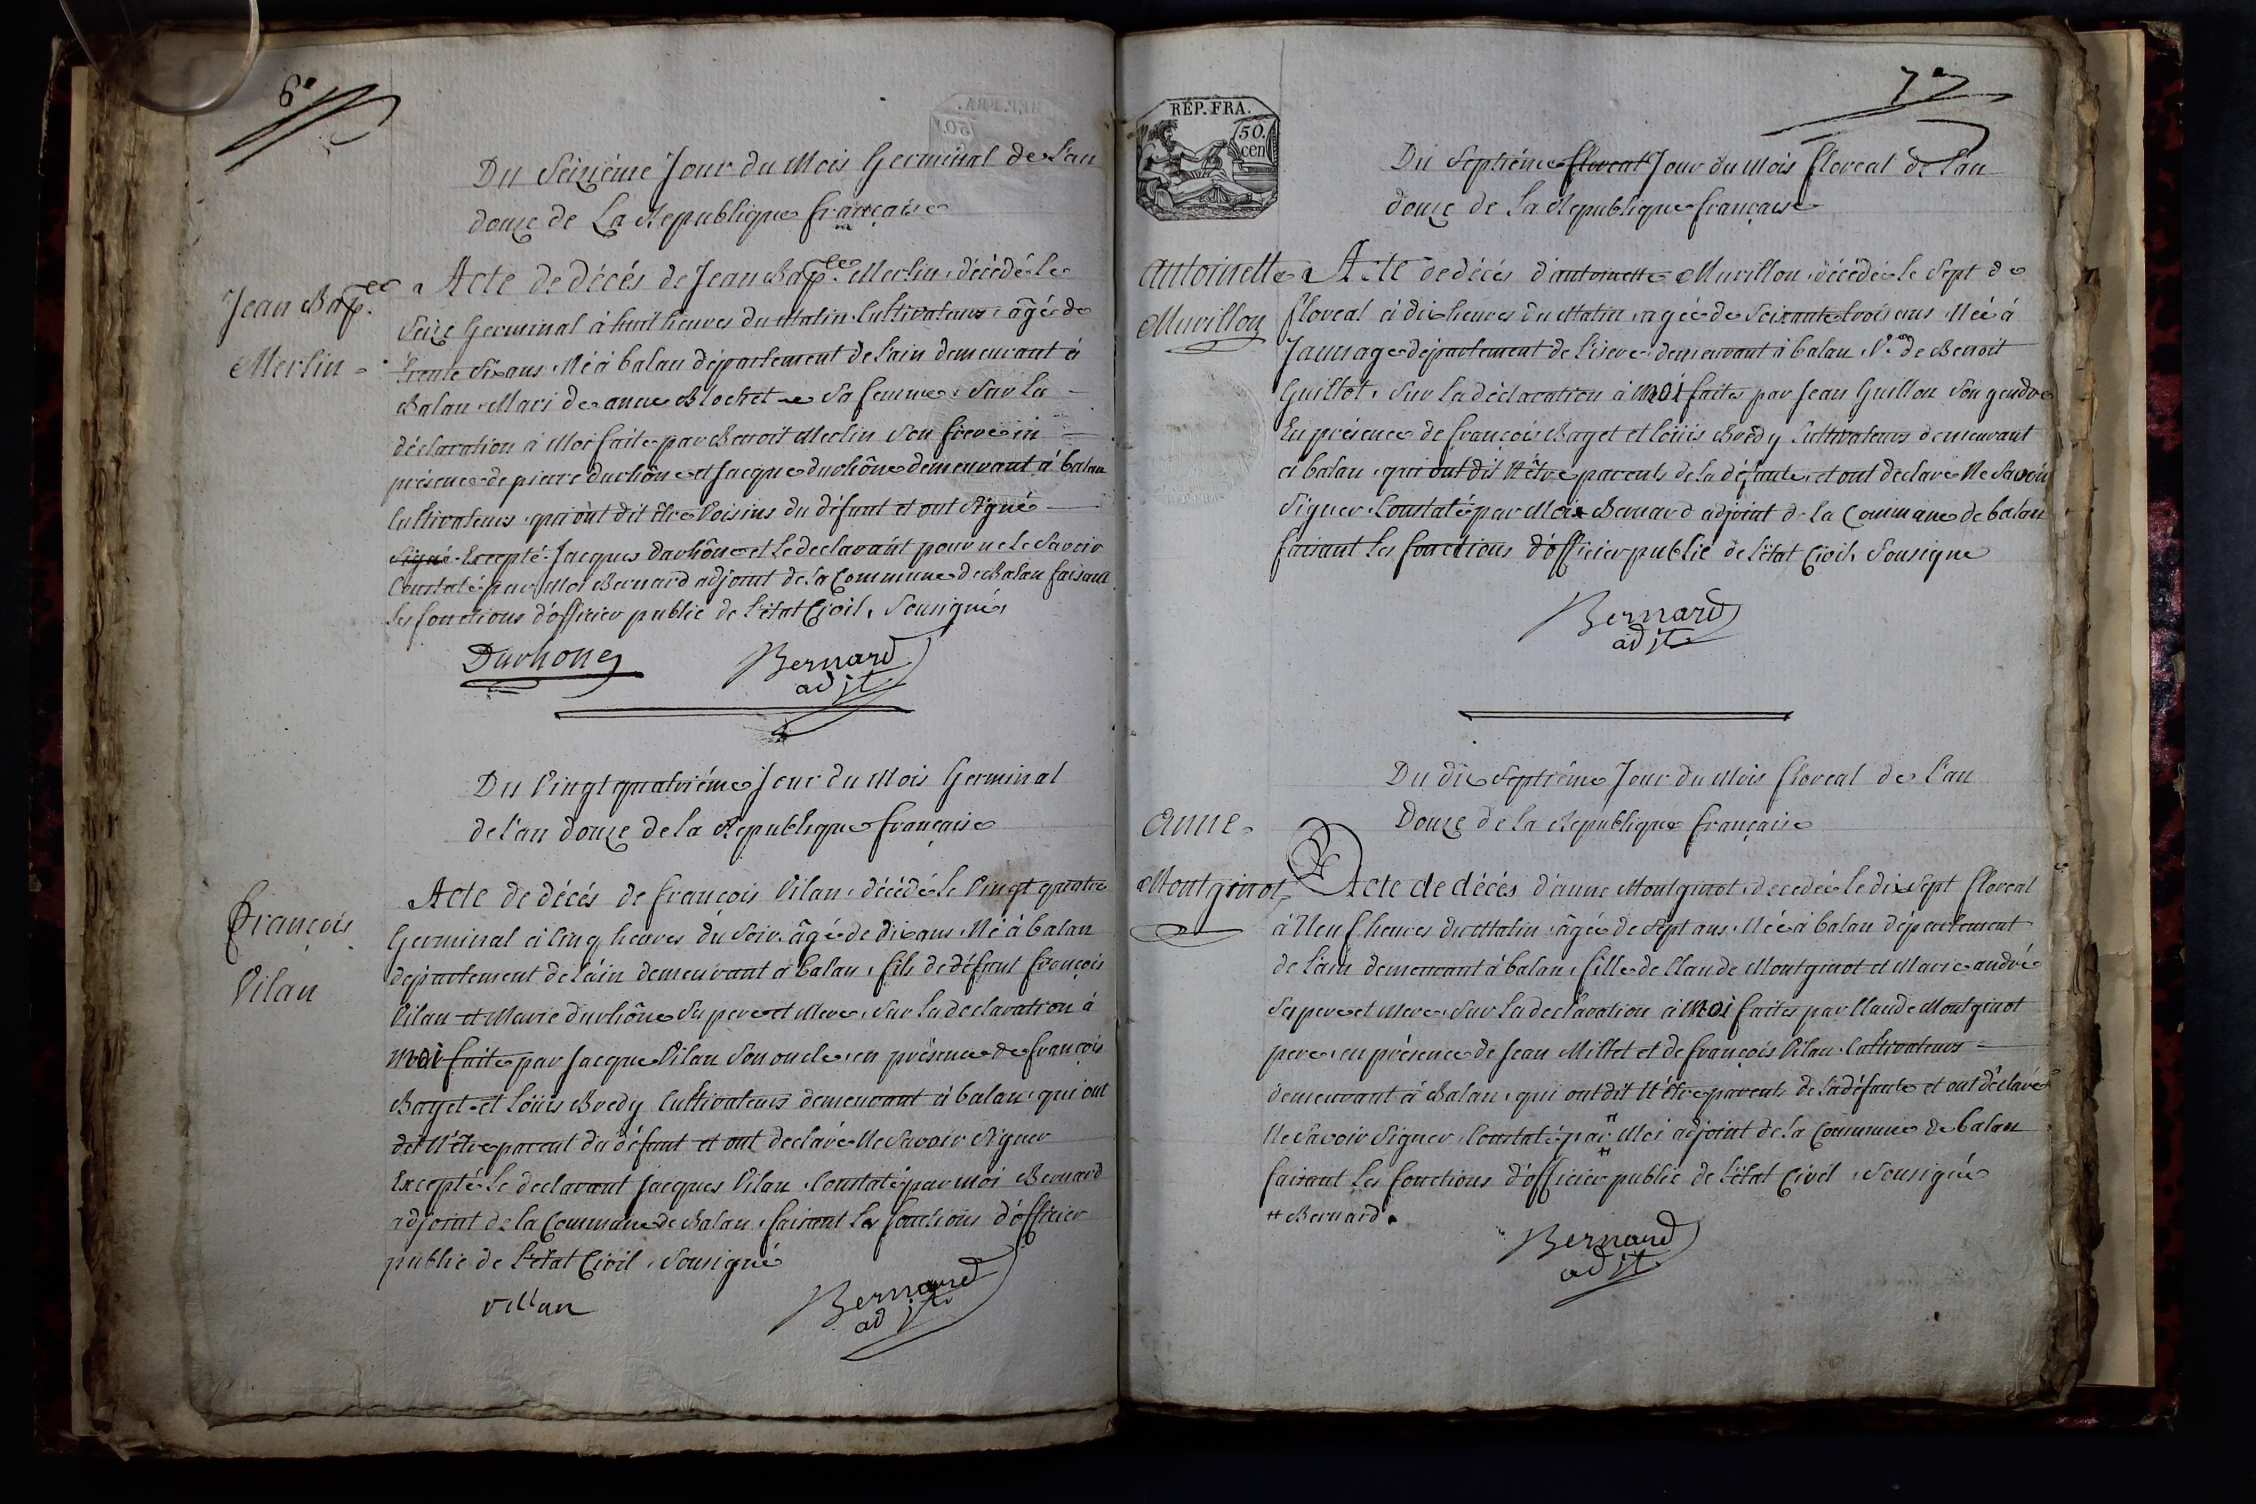 6e
Du Seizième Jour du Mois Germinal de L'an
douze de La Republique française
Jean Bap.te
Merlin
Acte de décés de Jean Bap.te Merlin, décédé le
Seize Germinal à huit heures du Matin Cultivateur, âgé de
trente Six ans, Né à balan département de l'ain demeurant à
Balan, Mari de anne Blochet sa femme, Sur la
déclaration à Moi faite par Benoit Merlin Son frere in
présence de pierre durhône et Jacque durhône demeurant à balan
Cultivateurs, qui ont dit être Voisins du défunt et ont Signé
Signé Excepté Jacques durhône et le declarant pour ne le Savoir
Constaté par Moi Bernard adjoint de la Commune de Balan faisant
les fonctions d'officier public de l'état Civil, Sousigné,
Durhone
Bernard
adjt.
Du Vingt quatrième Jour du Mois Germinal
de l'an douze de la Republique française
François
Vilan
Acte de décés de françois Vilan, décédé le Vingt quatre
Germinal à Cinq heures du Soir, âgé de dix ans, Né à balan
département de l'ain demeurant à balan, fils de défunt françois
Vilan et Marie durhône Sa pere et Mere, Sur la declaration à
moi faite par Jacque Vilan Son oncle, en présence de françois
Baget et Loüis Bredy Cultivateurs demeurant à balan, qui ont
dit N'être parent du défunt et ont declaré Ne Savoir Signer
Excepté Le declarant Jacques Vilan, Constaté par moi Bernard
adjoint de la Commune de Balan, faisant les fonctions d'officier
public de l'état Civil, Sousigné
villan
Bernard
adjt.
7e
RÉP. FRA.
50.
cen
Du Septième floreal Jour du Mois floreal de l'an
douze de La Republique française
Antoinette
Murillon
Acte de décés d'antoinette Murillon, décédée le Sept de
floreal à dix heures du Matin, agée de Soixante trois ans, Née à
département de l'isere demeurant à balan, V.e de Benoit
Guillot, Sur la déclaration à moi faite par Jean Guillon Son gendre
En présence de françois Baget et Loüis Bredy Cultivateurs demeurant
à balan, qui ont dit N'être parents de la défunte, et ont declaré Ne Savoir
Signer, Constaté par Moi Bernard adjoint de la Commune de balan
faisant les fonctions d'officier public de l'état Civil, Sousigne
Bernard
adjt.
Du dix Septième Jour du Mois floreal de l'an
Douze de la Republique française
Anne
Montginot
Acte de décés d'anne Montginot, decedée le dix Sept floreal
à Neuf heures du Matin, âgée de Sept ans, Née à balan département
de l'ain demeurant à balan, fille de Claude Montginot et Marie andré
Ses pere et Mere, Sur la declaration à moi faite par Claude Montginot
pere, en présence de Jean Millet et de françois Vilan Cultivateurs
demeurant à Balan, qui ont dit N'être parents de la défunte et ont déclaré
Ne Savoir Signer, Constaté par ⧺ Moi adjoint de la Commune de balan
faisant les fonctions d'officier public de l'état Civil, Sousigné
⧺ Bernard.
Bernard
adjt.